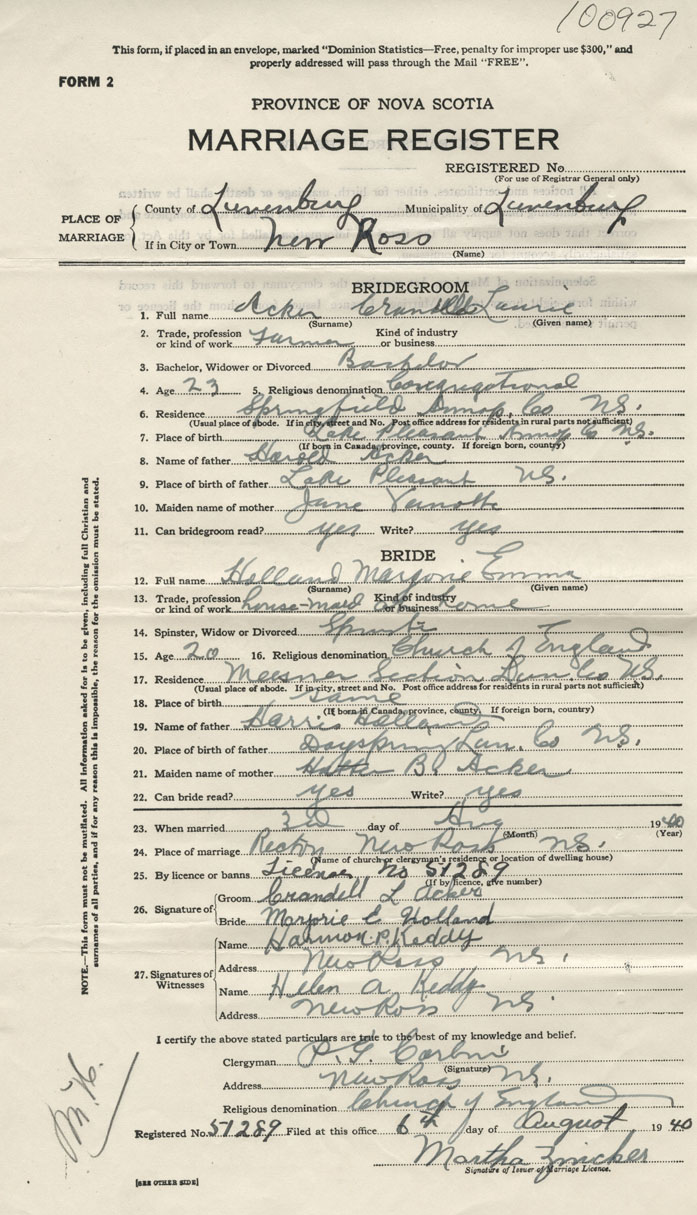 100927
This form, if placed in an envelope, marked "Dominion Statistics—Free, penalty for improper use $300," and
properly addressed will pass through the Mail "FREE".
FORM 2
PROVINCE OF NOVA SCOTIA
MARRIAGE REGISTER
REGISTERED No.
(For use of Registrar General only)
PLACE OF MARRIAGE
County of Lunenburg Municipality of Lunenburg
If in City or Town New Ross
(Name)
BRIDEGROOM
1. Full name Acker Crandell Laurie
(Surname) (Given name)
2. Trade, profession or kind of work Farmer Kind of industry or business
3. Bachelor, Widower or Divorced Bachelor
4. Age 23 5. Religious denomination Congregational
6. Residence Springfield Annap. Co N.S.
(Usual place of abode. If in city, street and No. Post office address for residents in rural parts not sufficient)
7. Place of birth Lake Pleasant Co N.S.
(If born in Canada, province, county. If foreign born, country)
8. Name of father Harold Acker
9. Place of birth of father Lake Pleasant N.S.
10. Maiden name of mother Jane Veinotte
11. Can bridegroom read? yes Write? yes
BRIDE
12. Full name Holland Marjorie Emma
(Surname) (Given name)
13. Trade, profession or kind of work house-maid Kind of industry or business home
14. Spinster, Widow or Divorced
15. Age 20 16. Religious denomination Church of England
17. Residence Section Lun. Co N.S.
(Usual place of abode. If in city, street and No. Post office address for residents in rural parts not sufficient)
18. Place of birth same
(If born in Canada, province, county. If foreign born, country)
19. Name of father Harris Holland
20. Place of birth of father Dayspring Lun. Co N.S.
21. Maiden name of mother B. Acker
22. Can bride read? yes Write? yes
23. When married 3rd day of Aug 1940
(Month) (Year)
24. Place of marriage Rectory New Ross N.S.
(Name of church or clergyman's residence or location of dwelling house)
25. By licence or banns License, No 51289
(If by licence, give number)
26. Signature of
Groom Crandell L Acker
Bride Marjorie E Holland
27. Signatures of Witnesses
Name Harmon P. Keddy
Address New Ross N.S.
Name Helen A. Keddy
Address New Ross N.S.
I certify the above stated particulars are true to the best of my knowledge and belief.
Clergyman
(Signature)
Address New Ross N.S.
Religious denomination Church of England
Registered No. 51289 Filed at this office 6th day of August 1940
Martha Zincker
Signature of Issuer of Marriage Licence.
[SEE OTHER SIDE]
NOTE.—This form must not be mutilated. All information asked for is to be given, including full Christian and
surnames of all parties, and if for any reason this is impossible, the reason for the omission must be stated.